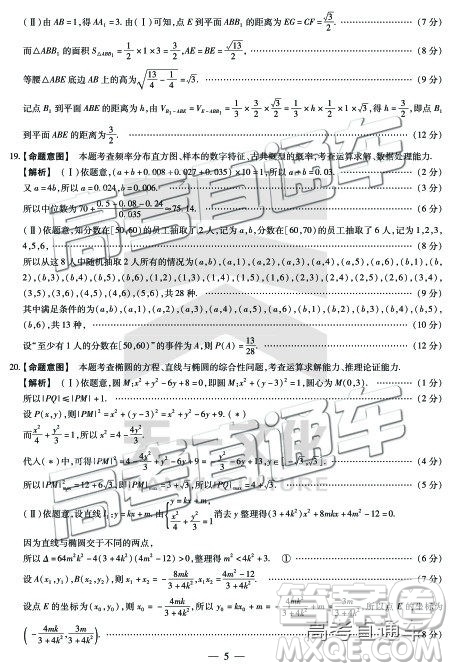 (Ⅱ)由 AB=1,得 AA₁=3. 由(Ⅰ)可知,点 E 到平面 ABB₁ 的距离为 EG=CF=√3/2. (7 分)
而△ABB₁ 的面积 S△ABB₁=1/2×1×3=3/2,AE=BE=√13/2, (8 分)
等腰△ABE 底边 AB 上的高为√(13/4-1/4)=√3. (9 分)
记点 B₁ 到平面 ABE 的距离为 h,由 V_{B₁-ABE}=V_{E-ABB₁}=1/3×3/2×√3/2=1/3×h×1/2×1×√3,得 h=3/2,即点 B₁
到平面 ABE 的距离为3/2. (12 分)
19.【命题意图】 本题考查频率分布直方图、样本的数字特征、古典概型的概率,考查运算求解、数据处理能力.
【解析】 (Ⅰ)依题意,(a+b+0.008+0.027+0.035)×10=1,所以 a+b=0.03. (2 分)
又 a=4b,所以 a=0.024,b=0.006. (4 分)
所以中位数为 70+(0.5-0.08-0.24)/0.035≈75.14. (6 分)
(Ⅱ)依题意,知分数在[50,60)的员工抽取了 2 人,记为 a,b,分数在[60,70)的员工抽取了 6 人,记为 1,2,3,
4,5,6, (8 分)
所以从这 8 人中随机抽取 2 人所有的情况为(a,b),(a,1),(a,2),(a,3),(a,4),(a,5),(a,6),(b,1),(b,
2),(b,3),(b,4),(b,5),(b,6),(1,2),(1,3),(1,4),(1,5),(1,6),(2,3),(2,4),(2,5),(2,6),(3,4),
(3,5),(3,6),(4,5),(4,6),(5,6),共 28 种. (9 分)
其中满足条件的为(a,b),(a,1),(a,2),(a,3),(a,4),(a,5),(a,6),(b,1),(b,2),(b,3),(b,4),(b,5),
(b,6),共 13 种, (11 分)
设“至少有 1 人的分数在[50,60)”的事件为 A,则 P(A)=13/28. (12 分)
20.【命题意图】 本题考查椭圆的方程、直线与椭圆的综合性问题,考查运算求解能力、推理论证能力.
【解析】 (Ⅰ)依题意,圆 M:x²+y²-6y+8=0,即圆 M:x²+(y-3)²=1,圆心为 M(0,3). (1 分)
所以|PQ|≤|PM|+1. (2 分)
设 P(x,y),则|PM|²=x²+(y-3)²=x²+y²-6y+9.(*) (3 分)
而x²/4+y²/3=1,所以 x²=4-4y²/3.
代入(*)中,可得|PM|²=4-4y²/3+y²-6y+9=-y²/3-6y+13,y∈[-√3,√3]. (4 分)
所以|PM|²max=12+6√3,即|PM|max=3+√3,所以|PQ|max=4+√3. (5 分)
(Ⅱ)依题意,设直线 l:y=kx+m,由{y=kx+m, x²/4+y²/3=1消去 y 整理得(3+4k²)x²+8mkx+4m²-12=0.
因为直线与椭圆交于不同的两点,
所以 Δ=64m²k²-4(3+4k²)(4m²-12)>0,整理得 m²<4k²+3. ① (6 分)
设 A(x₁,y₁),B(x₂,y₂),则 x₁+x₂=-8mk/(3+4k²),x₁x₂=(4m²-12)/(3+4k²). (7 分)
设点 E 的坐标为(x₀,y₀),则 x₀=-4mk/(3+4k²),所以 y₀=kx₀+m=-4mk²/(3+4k²)+m=3m/(3+4k²),所以点 E 的坐标为
(-4mk/(3+4k²),3m/(3+4k²)). (8 分)
— 5 —
高考直通车